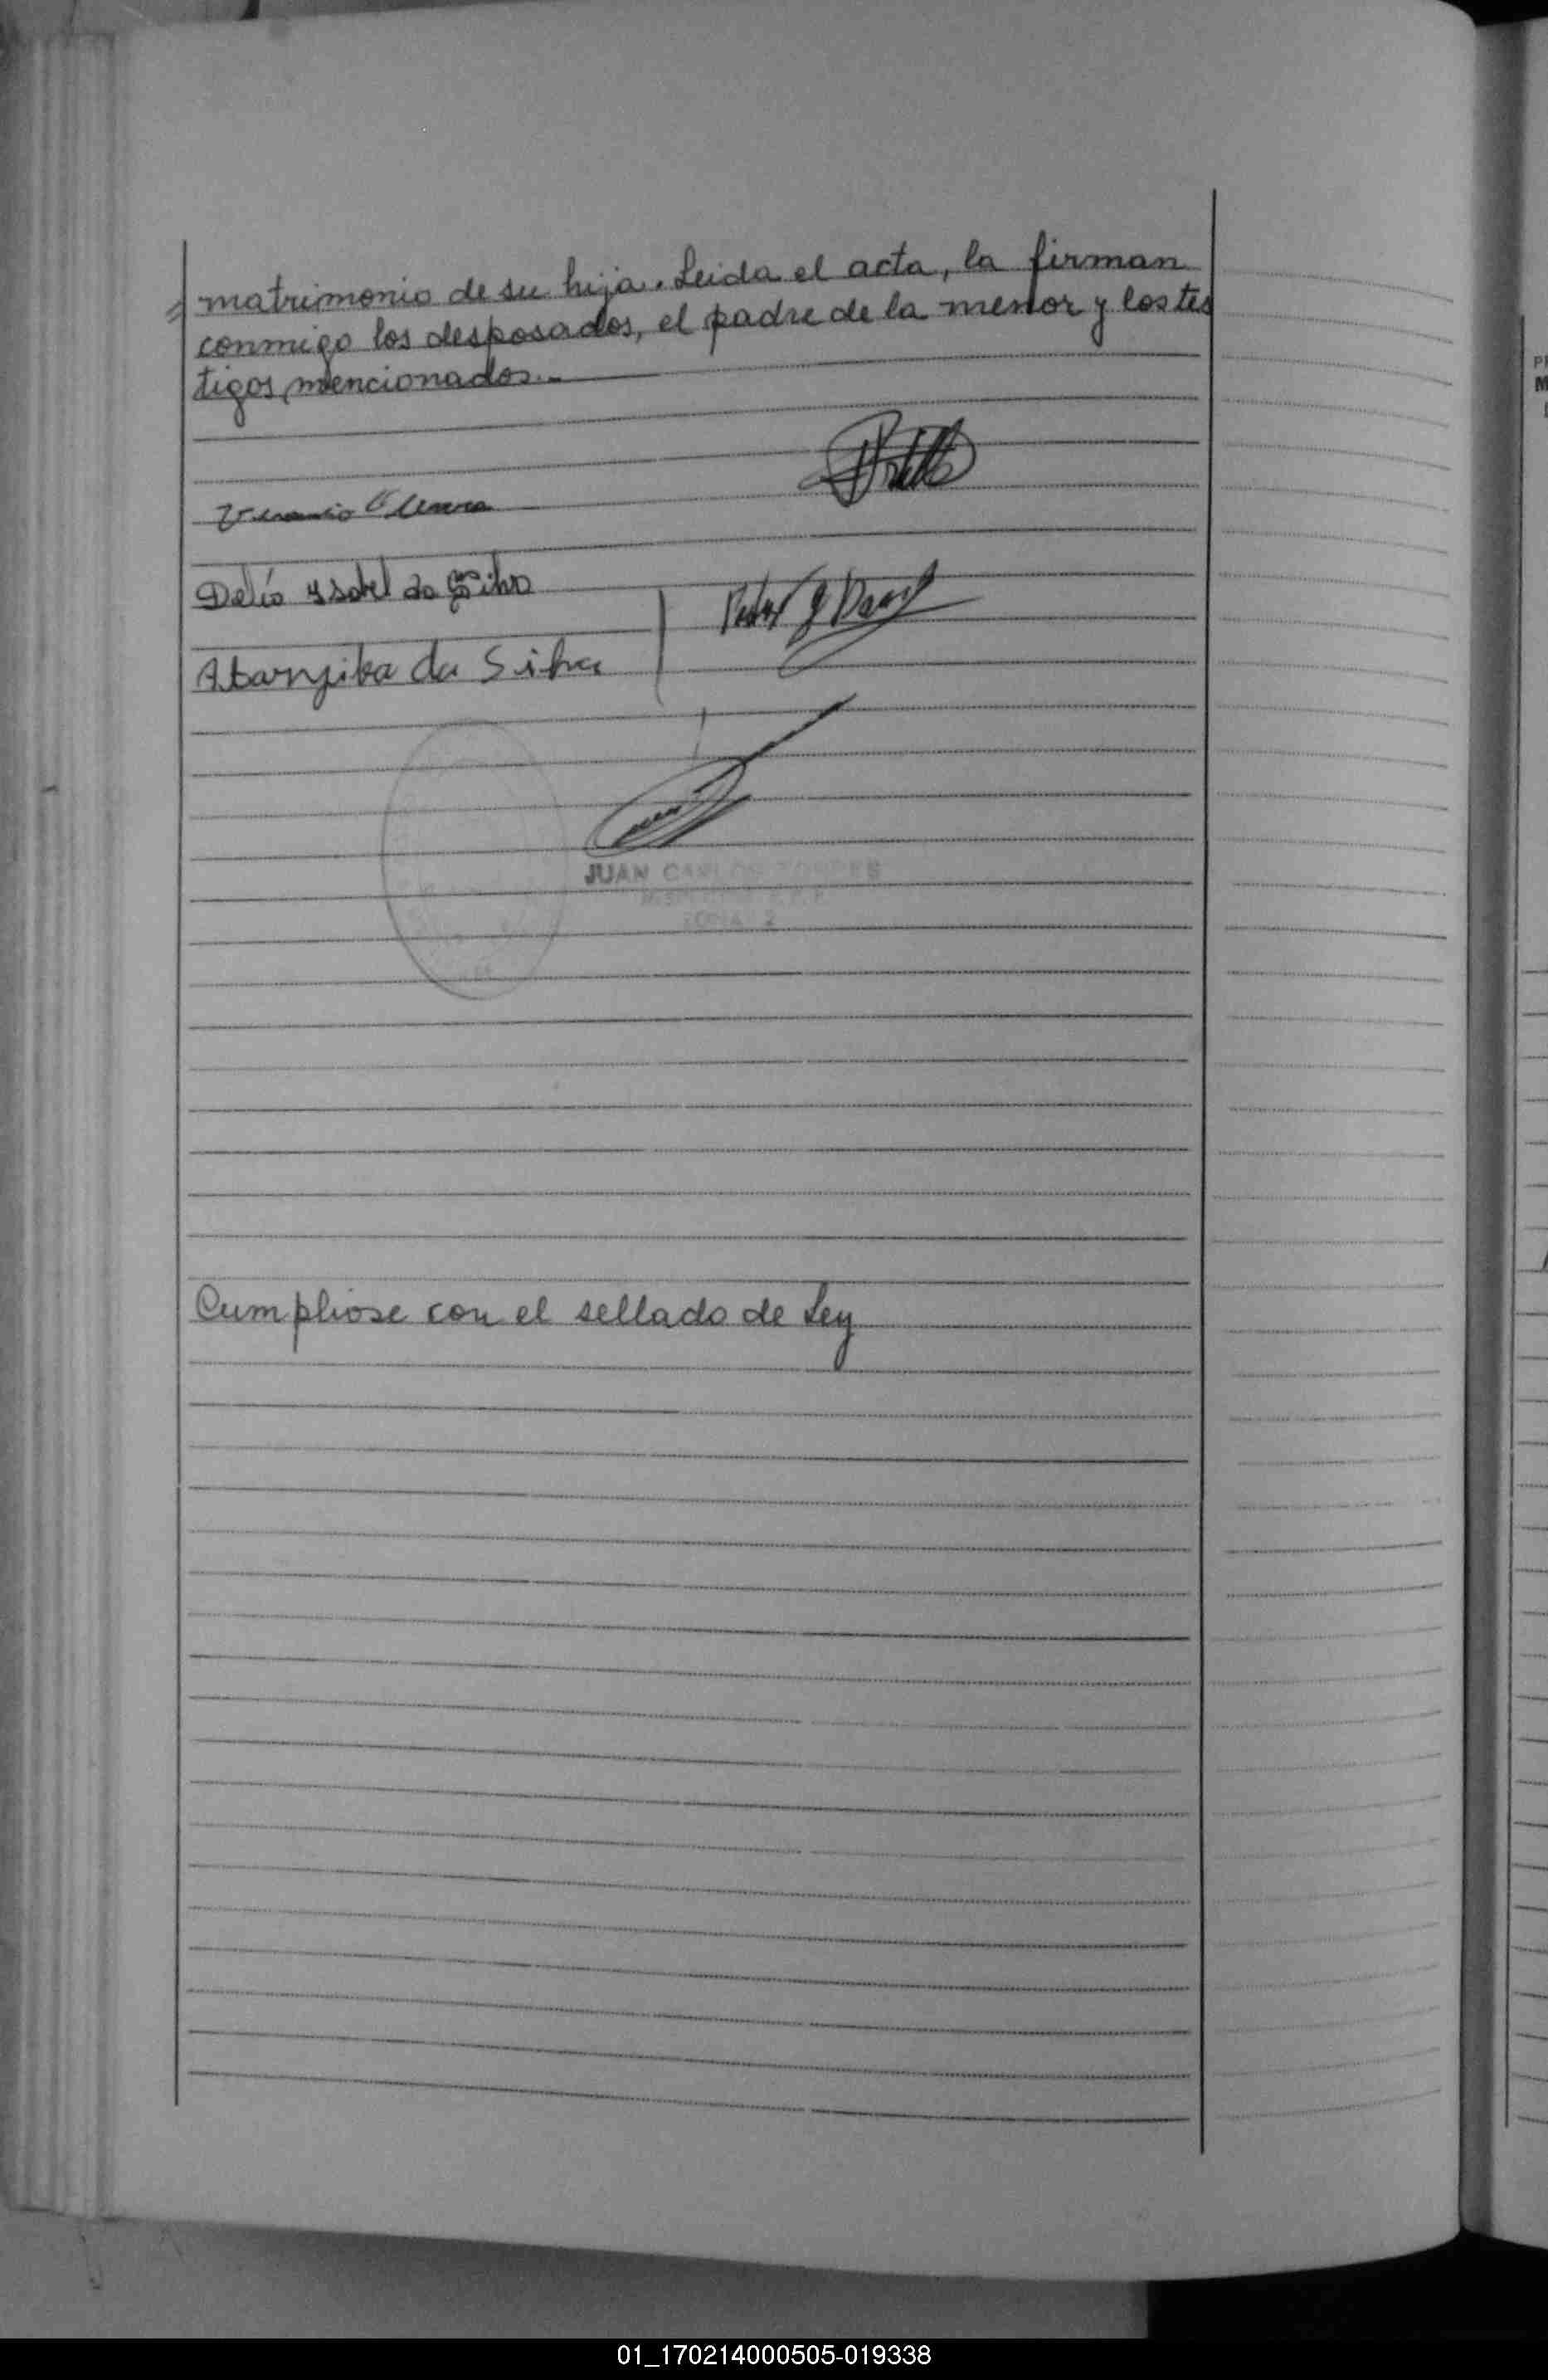 matrimonio de su hija. Leida el acta, la firman
conmigo los desposados, el padre de la menor y los tes
tigos mencionados.-
Ysabel da Silva
da Silva
JUAN CARLOS TORRES
ZONA 2
Cumpliose con el sellado de Ley
01_170214000505-019338